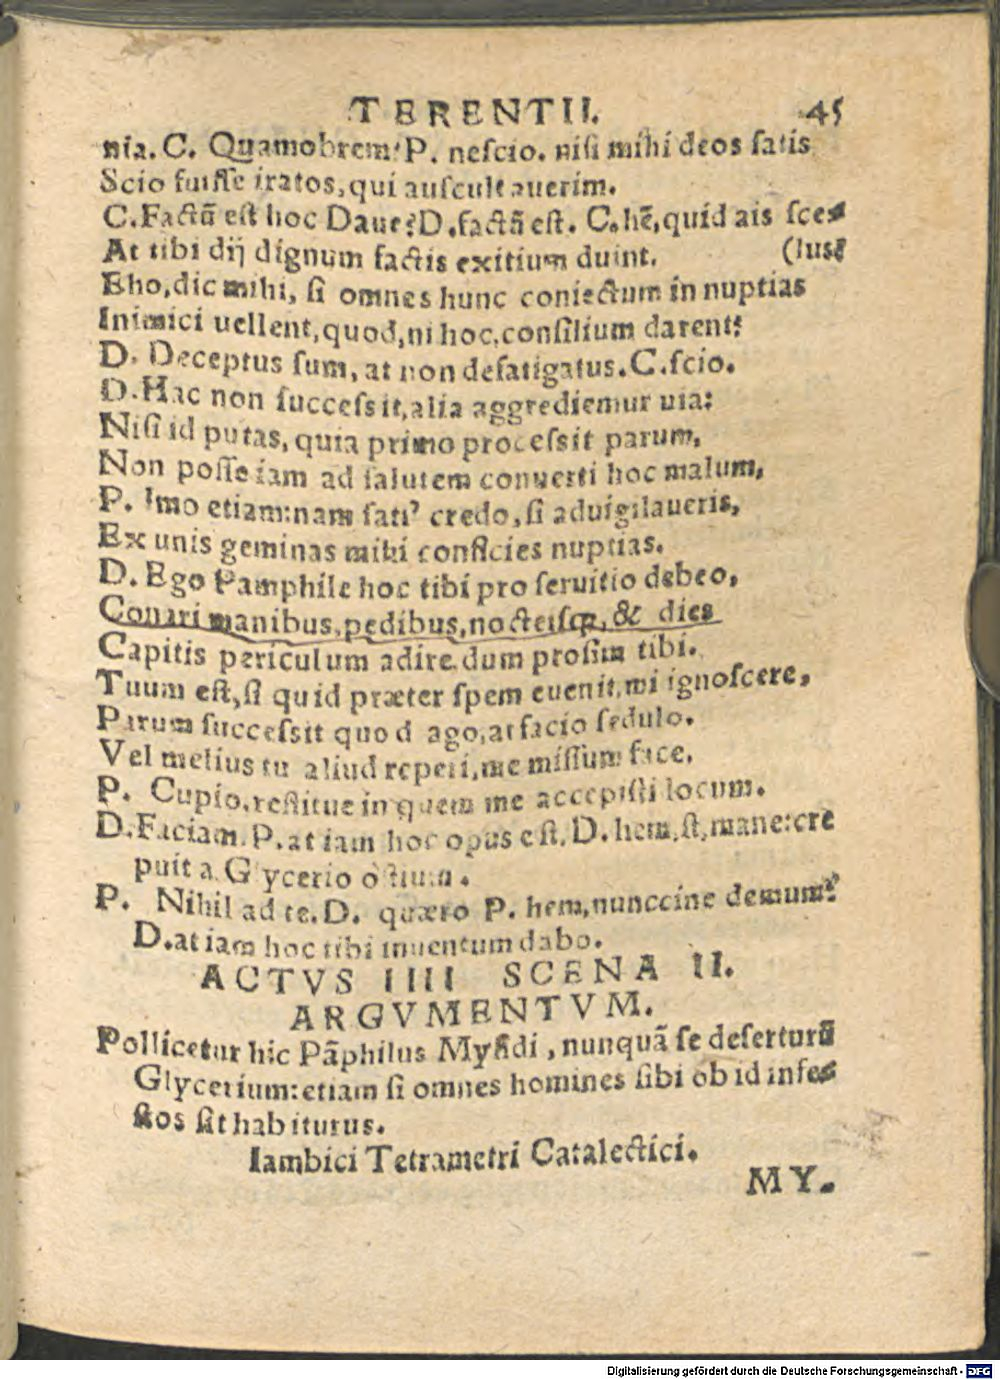 TERENTII. 45
nia. C. Quamobrem? P. nescio. nisi mihi deos satis
Scio fuisse iratos, qui auscultauerim.
C. Factū est hoc Daue? D. factū est. C. hē, quid ais sce-
At tibi dij dignum factis exitium duint. (lus?
Eho, dic mihi, si omnes hunc coniectum in nuptias
Inimici uellent, quod, ni hoc, consilium darent?
D. Deceptus sum, at non defatigatus. C. scio.
D. Hac non successit, alia aggrediemur uia:
Nisi id putas, quia primo processit parum,
Non posse iam ad salutem conuerti hoc malum,
P. Imo etiam: nam satiꝰ credo, si aduigilaueris,
Ex unis geminas mihi conficies nuptias.
D. Ego Pamphile hoc tibi pro seruitio debeo,
Conari manibus, pedibus, nocteisq́;, & dies
Capitis periculum adire. dum prosim tibi.
Tuum est, si quid præter spem euenit, mi ignoscere,
Parum successit quod ago, at facio sedulo.
Vel melius tu aliud reperi, me missum face.
P. Cupio, restitue in quem me accepisti locum.
D. Faciam. P. at iam hoc opus est. D. hem, st, mane: cre
puit a Glycerio ostium.
P. Nihil ad te. D. quæro P. hem, nunccine demum?
D. at iam hoc tibi inuentum dabo.
ACTVS IIII SCENA II.
ARGVMENTVM.
Pollicetur hic Pāphilus Mysidi, nunquā se deserturū
Glycerium: etiam si omnes homines sibi ob id infe-
stos sit habiturus.
Iambici Tetrametri Catalectici.
MY.
Digitalisierung gefördert durch die Deutsche Forschungsgemeinschaft - DFG